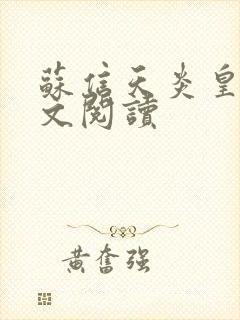 蘇信天炎皇
文閱讀
黃奮强